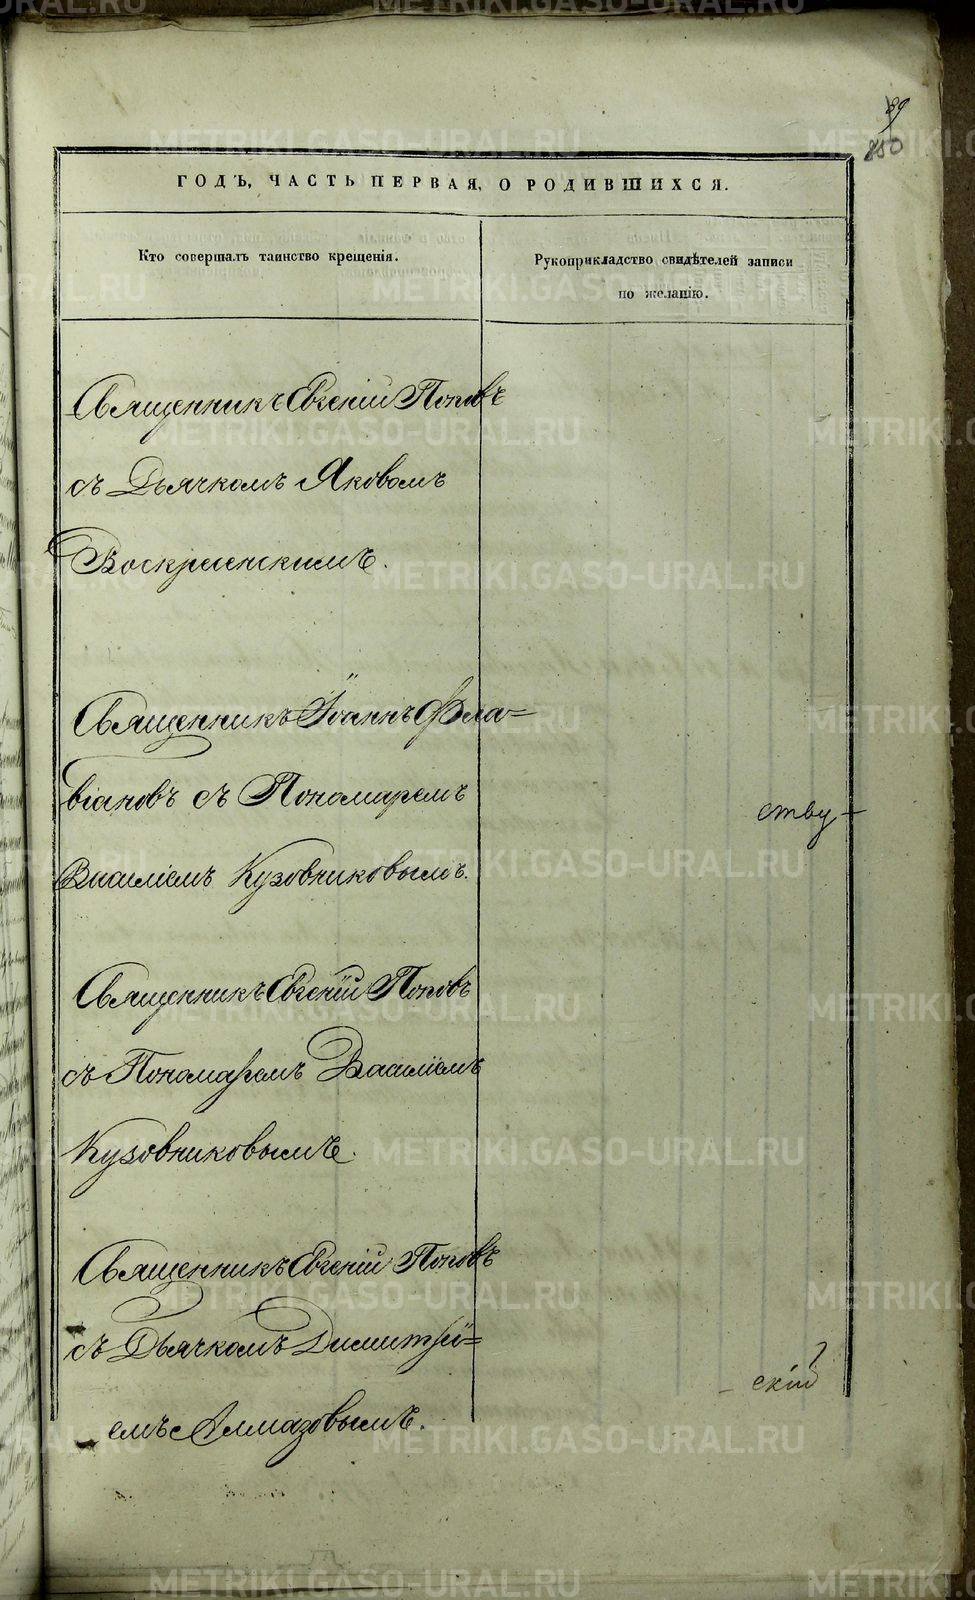 89
850
ГОДЪ, ЧАСТЬ ПЕРВАЯ, О РОДИВШИХСЯ.
Кто совершалъ таинство крещенія.
Рукоприкладство свидѣтелей записи
по желанію.
Священникъ Евгеній Поповъ
съ Дьячкомъ Яковомъ
Воскресенскимъ.
Священникъ Іоаннъ Фла=
віановъ съ Пономаремъ
Василіемъ Кузовниковымъ.
Священникъ Евгеній Поповъ
съ Пономаремъ Василіемъ
Кузовниковымъ.
Священникъ Евгеній Поповъ
съ Дьячкомъ Димитрі=
емъ Алмазовымъ.
ству-
скій
METRIKI.GASO-URAL.RU